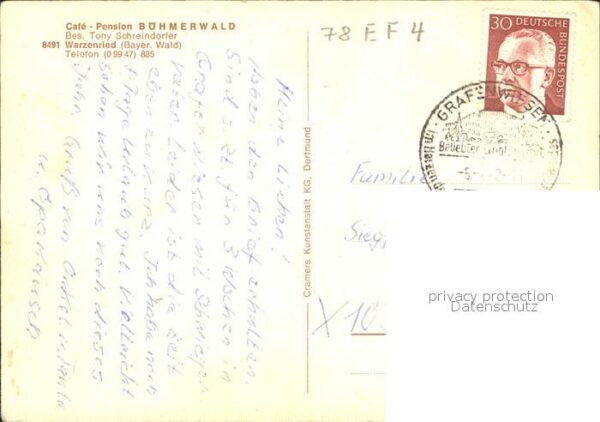 Café - Pension BÖHMERWALD
Bes. Tony Schreindorfer
8491 Warzenried (Bayer. Wald)
Telefon (0 99 47) 885
78 E F 4
30 DEUTSCHE
BUNDESPOST
GRAFENWIESEN
Beliebter
Meine Lieben!
Haben den Brief erhalten.
Sind z. Zt. für 3 Wochen in
Grafenwiesen mit
leider ist die Zeit
eben zu kurz. Ich habe noch
Tage Urlaub gut. Vielleicht
sehen wir uns noch dieses
Jahr. Gruß von Onkel u. Tante
Cramers Kunstanstalt KG. Dortmund
Familie
Siegf
X 10
privacy protection
Datenschutz